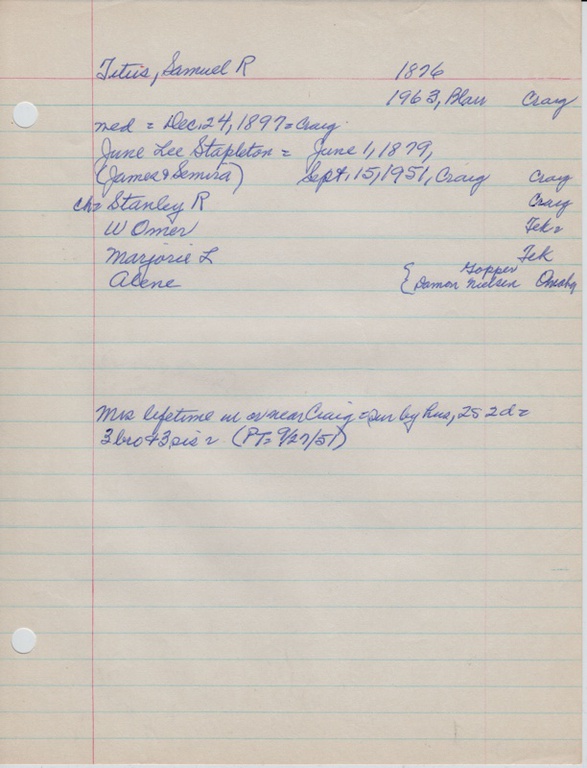 Titus, Samuel R 1876
1963, Blair Craig
med = Dec. 24, 1897 = Craig
June Lee Stapleton = June 1, 1879,
(James & Semira) Sept. 15, 1951, Craig Craig
ch= Stanley R Craig
W Omer Tek=
Marjorie L Tek
Alene { Gopper Damon Nielsen Omaha
Mrs lifetime in or near Craig = sur by hus, 2s 2d =
3 bro + 3 sis = (PT= 9/27/51)